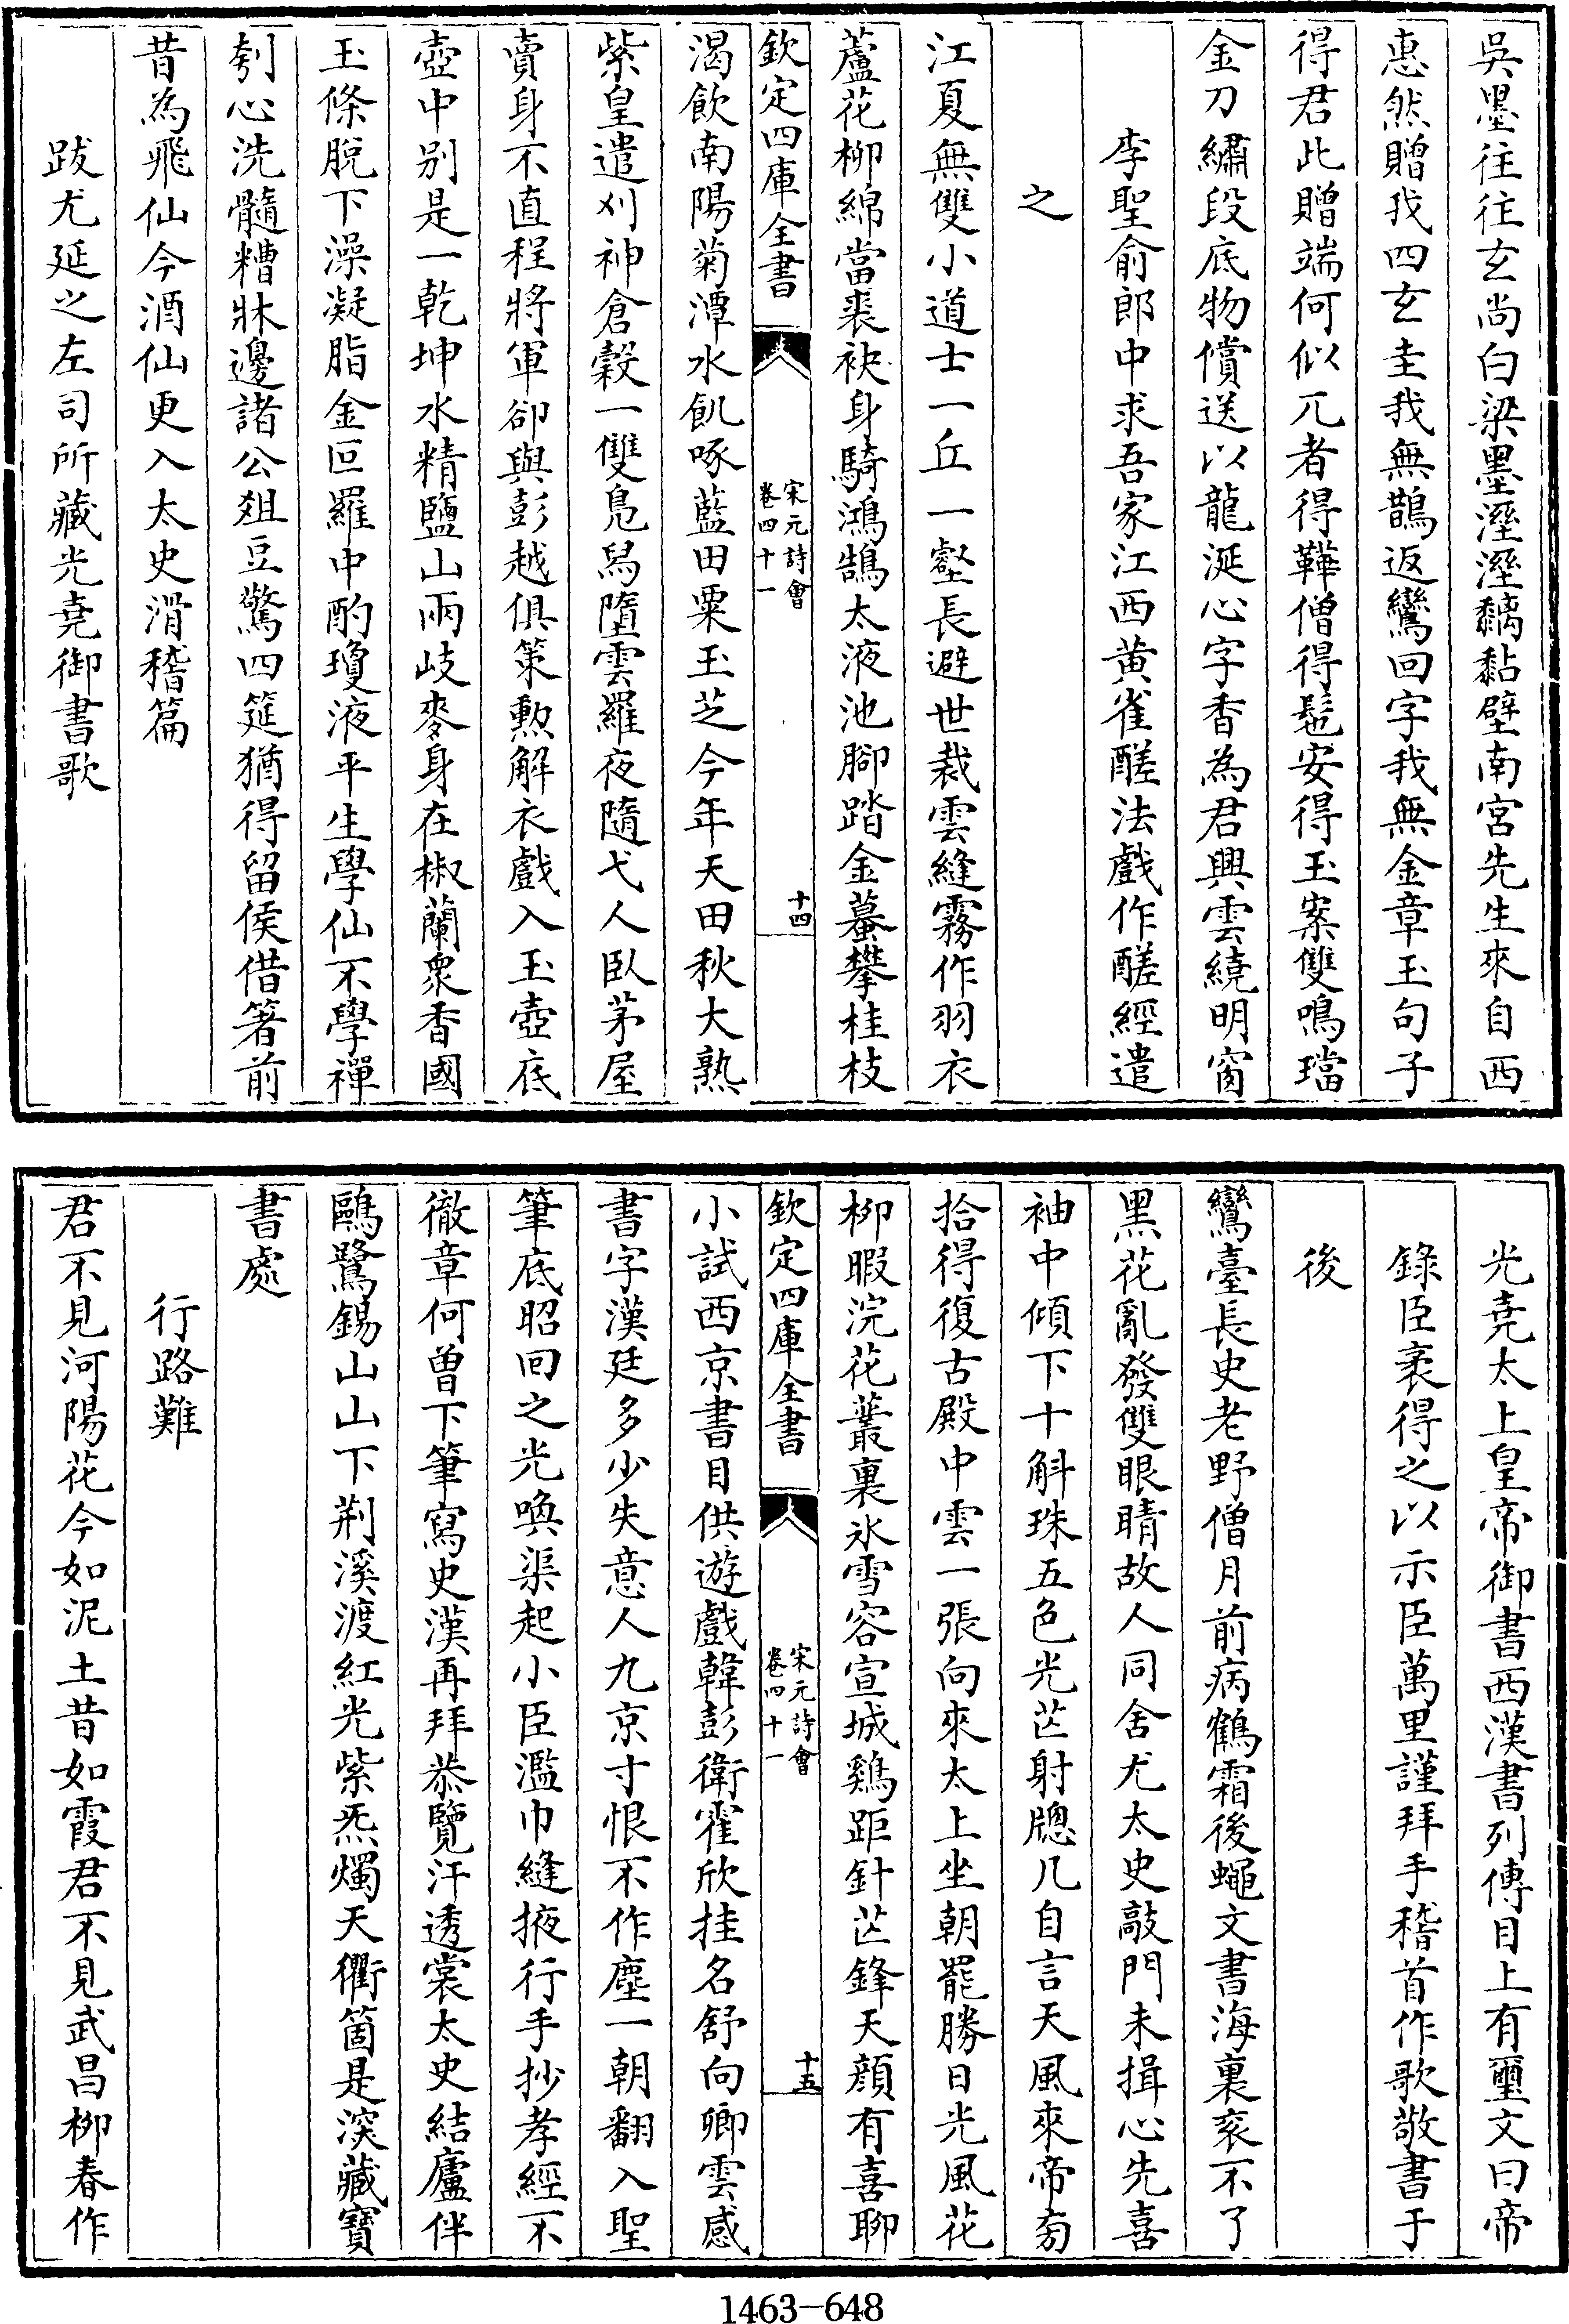 吳墨往往玄尚白梁墨溼溼黐黏壁南宮先生來自西
惠然贈我四玄圭我無鵲返鸞回字我無金章玉句子
得君此贈端何似兀者得鞾僧得髢安得玉案雙鳴璫
金刀繡段底物償送以龍涎心字香為君興雲繞明窗
李聖俞郎中求吾家江西黄雀醝法戲作醝經遣
之
江夏無雙小道士一丘一壑長避世裁雲縫霧作羽衣
蘆花柳綿當裘袂身騎鴻鵠太液池腳踏金蟇攀桂枝
欽定四庫全書
宋元詩會
卷四十一
十四
渴飲南陽菊潭水飢啄藍田粟玉芝今年天田秋大熟
紫皇遣刈神倉穀一雙鳧舄墮雲羅夜隨弋人卧茅屋
賣身不直程將軍卻與彭越俱策勲解衣戲入玉壺底
壺中别是一乾坤水精鹽山兩岐麥身在椒蘭衆香國
玉條脫下澡凝脂金叵羅中酌瓊液平生學仙不學禪
刳心洗髓糟牀邊諸公爼豆驚四筵猶得留侯借箸前
昔為飛仙今酒仙更入太史滑稽篇
跋尤延之左司所藏光堯御書歌
光堯太上皇帝御書西漢書列傳目上有璽文曰帝
錄臣袤得之以示臣萬里謹拜手稽首作歌敬書于
後
鸞臺長史老野僧月前病鶴霜後蠅文書海裏衮不了
黑花亂發雙眼睛故人同舍尤太史敲門未揖心先喜
袖中傾下十斛珠五色光芒射牕几自言天風來帝旁
拾得復古殿中雲一張向來太上坐朝罷勝日光風花
柳暇浣花叢裏氷雪容宣城鷄距針芒鋒天顔有喜聊
欽定四庫全書
宋元詩會
卷四十一
十五
小試西京書目供遊戲韓彭衛霍欣挂名舒向卿雲感
書字漢廷多少失意人九京寸恨不作塵一朝翻入聖
筆底昭回之光喚渠起小臣濫巾縫掖行手抄孝經不
徹章何曾下筆寫史漢再拜恭覽汗透裳太史結廬伴
鷗鷺錫山山下荆溪渡紅光紫炁燭天衢箇是深藏寶
書處
行路難
君不見河陽花今如泥土昔如霞君不見武昌柳春作
1463-648